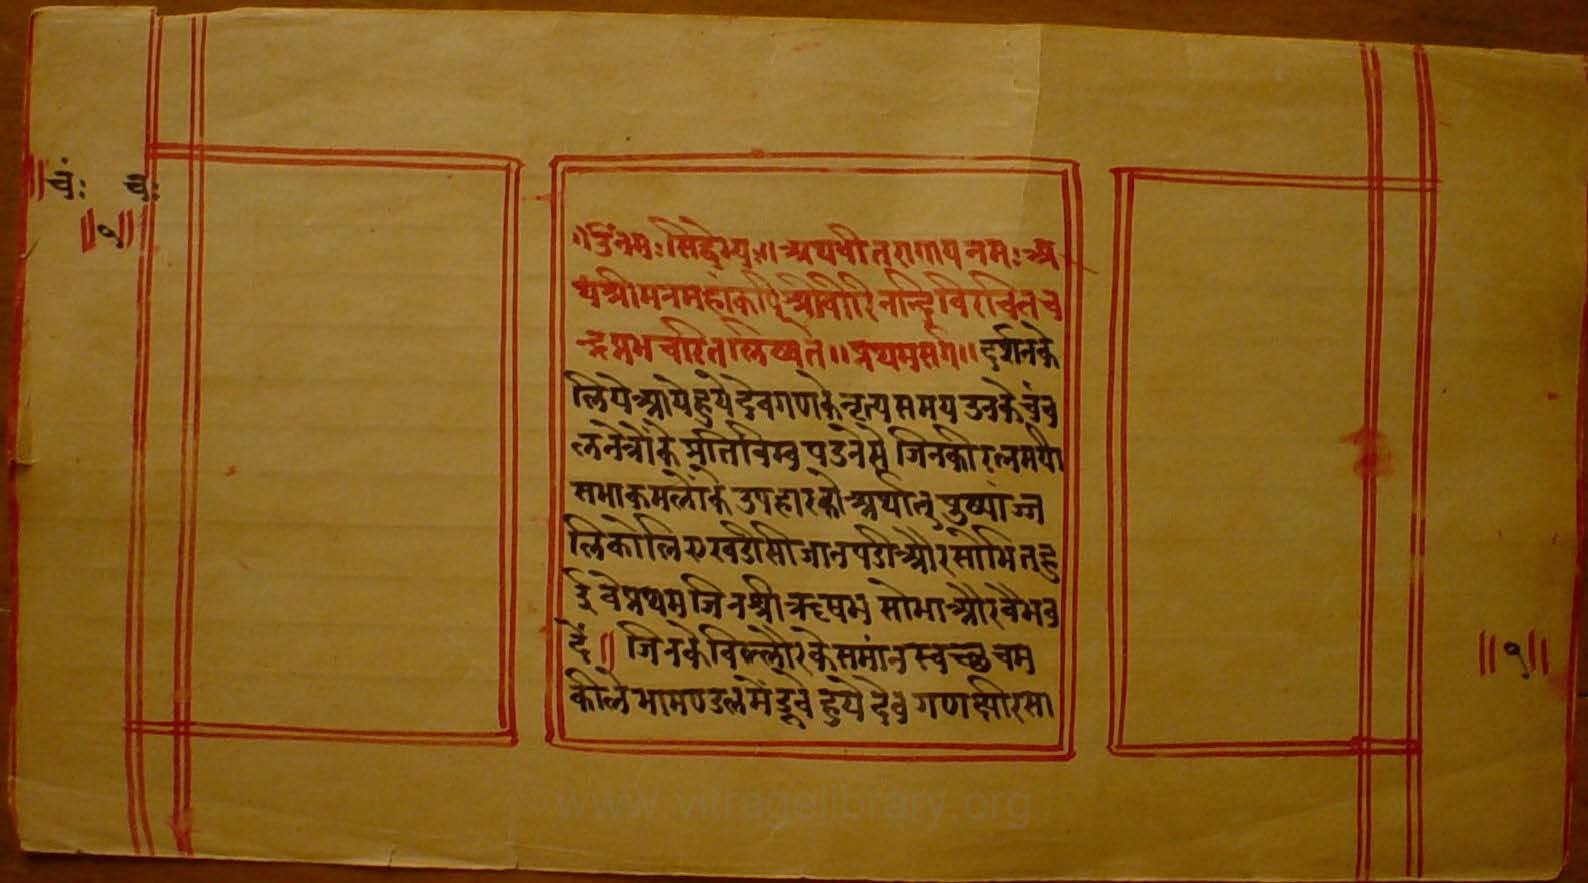 चंः चः
॥१॥
॥उँनमः सिद्धेभ्यः॥ अथवीतरागाय नमः अ
थश्रीमनमहाकवि श्रीवीरिनन्दि विरचित च
न्द्रप्रभचरित लिख्यते॥ प्रथमसर्ग॥ दर्शनके
लिये आये हुये देवगणके नृत्य समय उनके चंच
लनेत्रोंके प्रतिविम्ब पडनेसे जिनकी रत्नमयी
सभाकमलोंके उपहारको अर्थात् पुष्पाञ्ज
लिकोलिए खडीसी जानपडी और सोभित हु
ई वेप्रथमजिन श्री ऋषभ सोभा और वैभव
दें॥ जिनके विल्लौरके समांन स्वच्छ चम
कीले भामण्डलमें डूवे हुये देवगण क्षीरसा
॥१॥
www.vitragelibrary.org